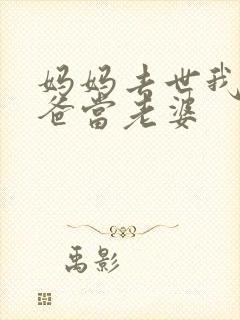 妈妈去世我
爸當老婆
禹影